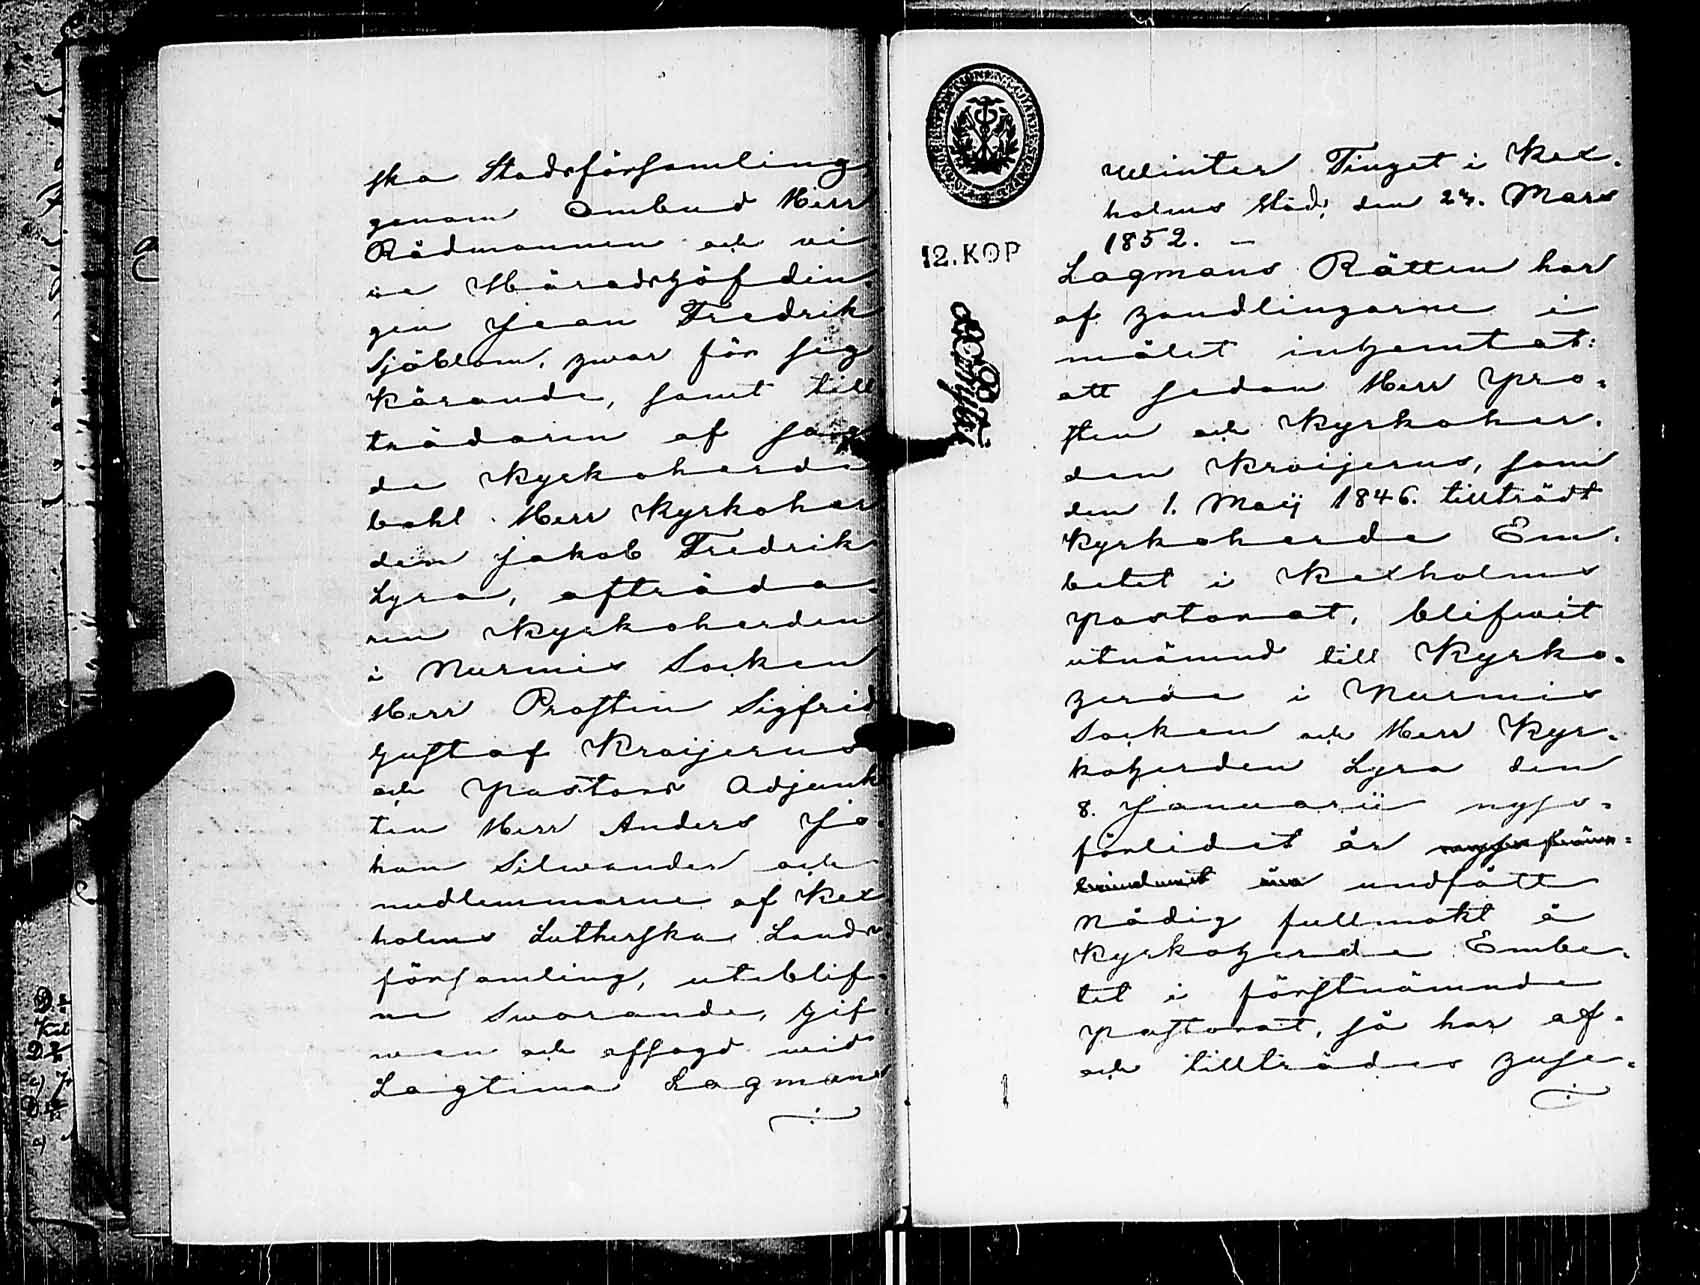 ska Stadsförsamling
genom Ombud Herr
Rådmannen och vi
ce Häradshöfdin-
gen Jean Fredrik
Sjöblom, hwar för sig
Kärande, samt till
trädaren af
de Kyrkoherde
bohl Herr Kyrkoher
den Jakob Fredrik
Lyra, afträda-
ren Kyrkoherden
i Nurmis Socken
Herr Prosten Sigfrid
Gustaf Kroijerus
och Pastors Adjunk
ten Herr Anders Jo-
han Silwander och
medlemmarne af Kex
holms Lutherska Lands
församling, uteblif-
ne Swarande, gif
wen och afsagd wid
Lagtima Lagmans
Winter Tinget i Kex-
holms stad, den 27. Mars
1852. –
12. KOP
Lagmans Rätten har
af handlingarne i
målet inhemtat:
att sedan Herr Pro-
sten och Kyrkoher-
den Kroijerus, som
den 1. Maij 1846. tillträdt
Kyrkoherde Em-
betet i Kexholms
Pastorat, blifwit
utnämnd till Kyrko-
herde i Nurmis
Socken och Herr Kyr-
koherden Lyra den
8. Januarii nyss-
förlidet år
undfått
Nådig fullmakt å
Kyrkoherde Embe-
tet i förstnämnde
Pastorat, så har af-
och tillträdes huse-